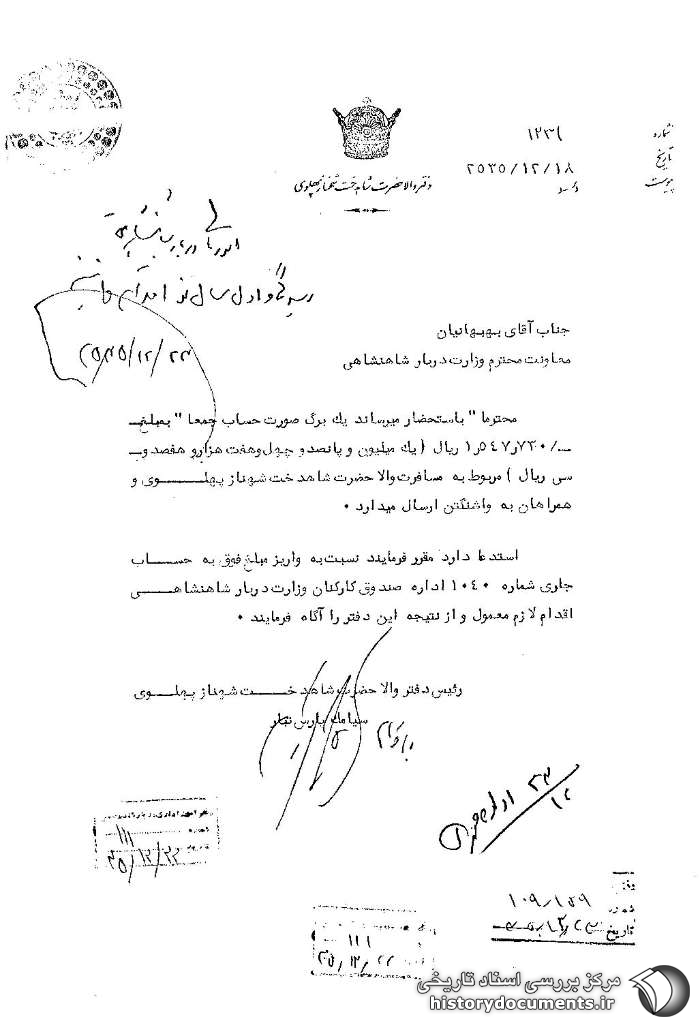 شماره ۱۲۳۱
تاریخ ۲۵۳۵/۱۲/۱۸
پیوست دارد
دفتر والاحضرت شاهدخت شهناز پهلوی
۲۵۳۵/۱۲/۲۳
جناب آقای بهبهانیان
معاونت محترم وزارت دربار شاهنشاهی
محترما" باستحضار میرساند یك برگ صورت حساب جمعا" بمبلغ
۱٫۵۴۷٫۷۳۰/ــ ریال ( یك میلیون و پانصدو چهل وهفت هزارو هفصدو
سی ریال ) مربوط به مسافرت والا حضرت شاهدخت شهناز پهلــــوی و
همراهان به واشنگتن ارسال میدارد ۰
استدعا دارد مقرر فرمایند نسبت به واریز مبلغ فوق به حســاب
جاری شماره ۱۰۴۰ اداره صندوق کارکنان وزارت دربار شاهنشاهــی
اقدام لازم معمول و از نتیجه این دفتر را آگاه فرمایند ۰
رئیس دفتر والا حضرت شاهدخـــت شهنـاز پهلــوی
سیامك پارس تبار
۲۳/۱۲
۱۱۱
۳۵/۱۲/۲۳
دفتر
شماره ۱۰۹٫۱۵۹
تاریخ
۱۱۱
۳۵/۱۲/۲۲
مرکز بررسی اسناد تاریخی
historydocuments.ir